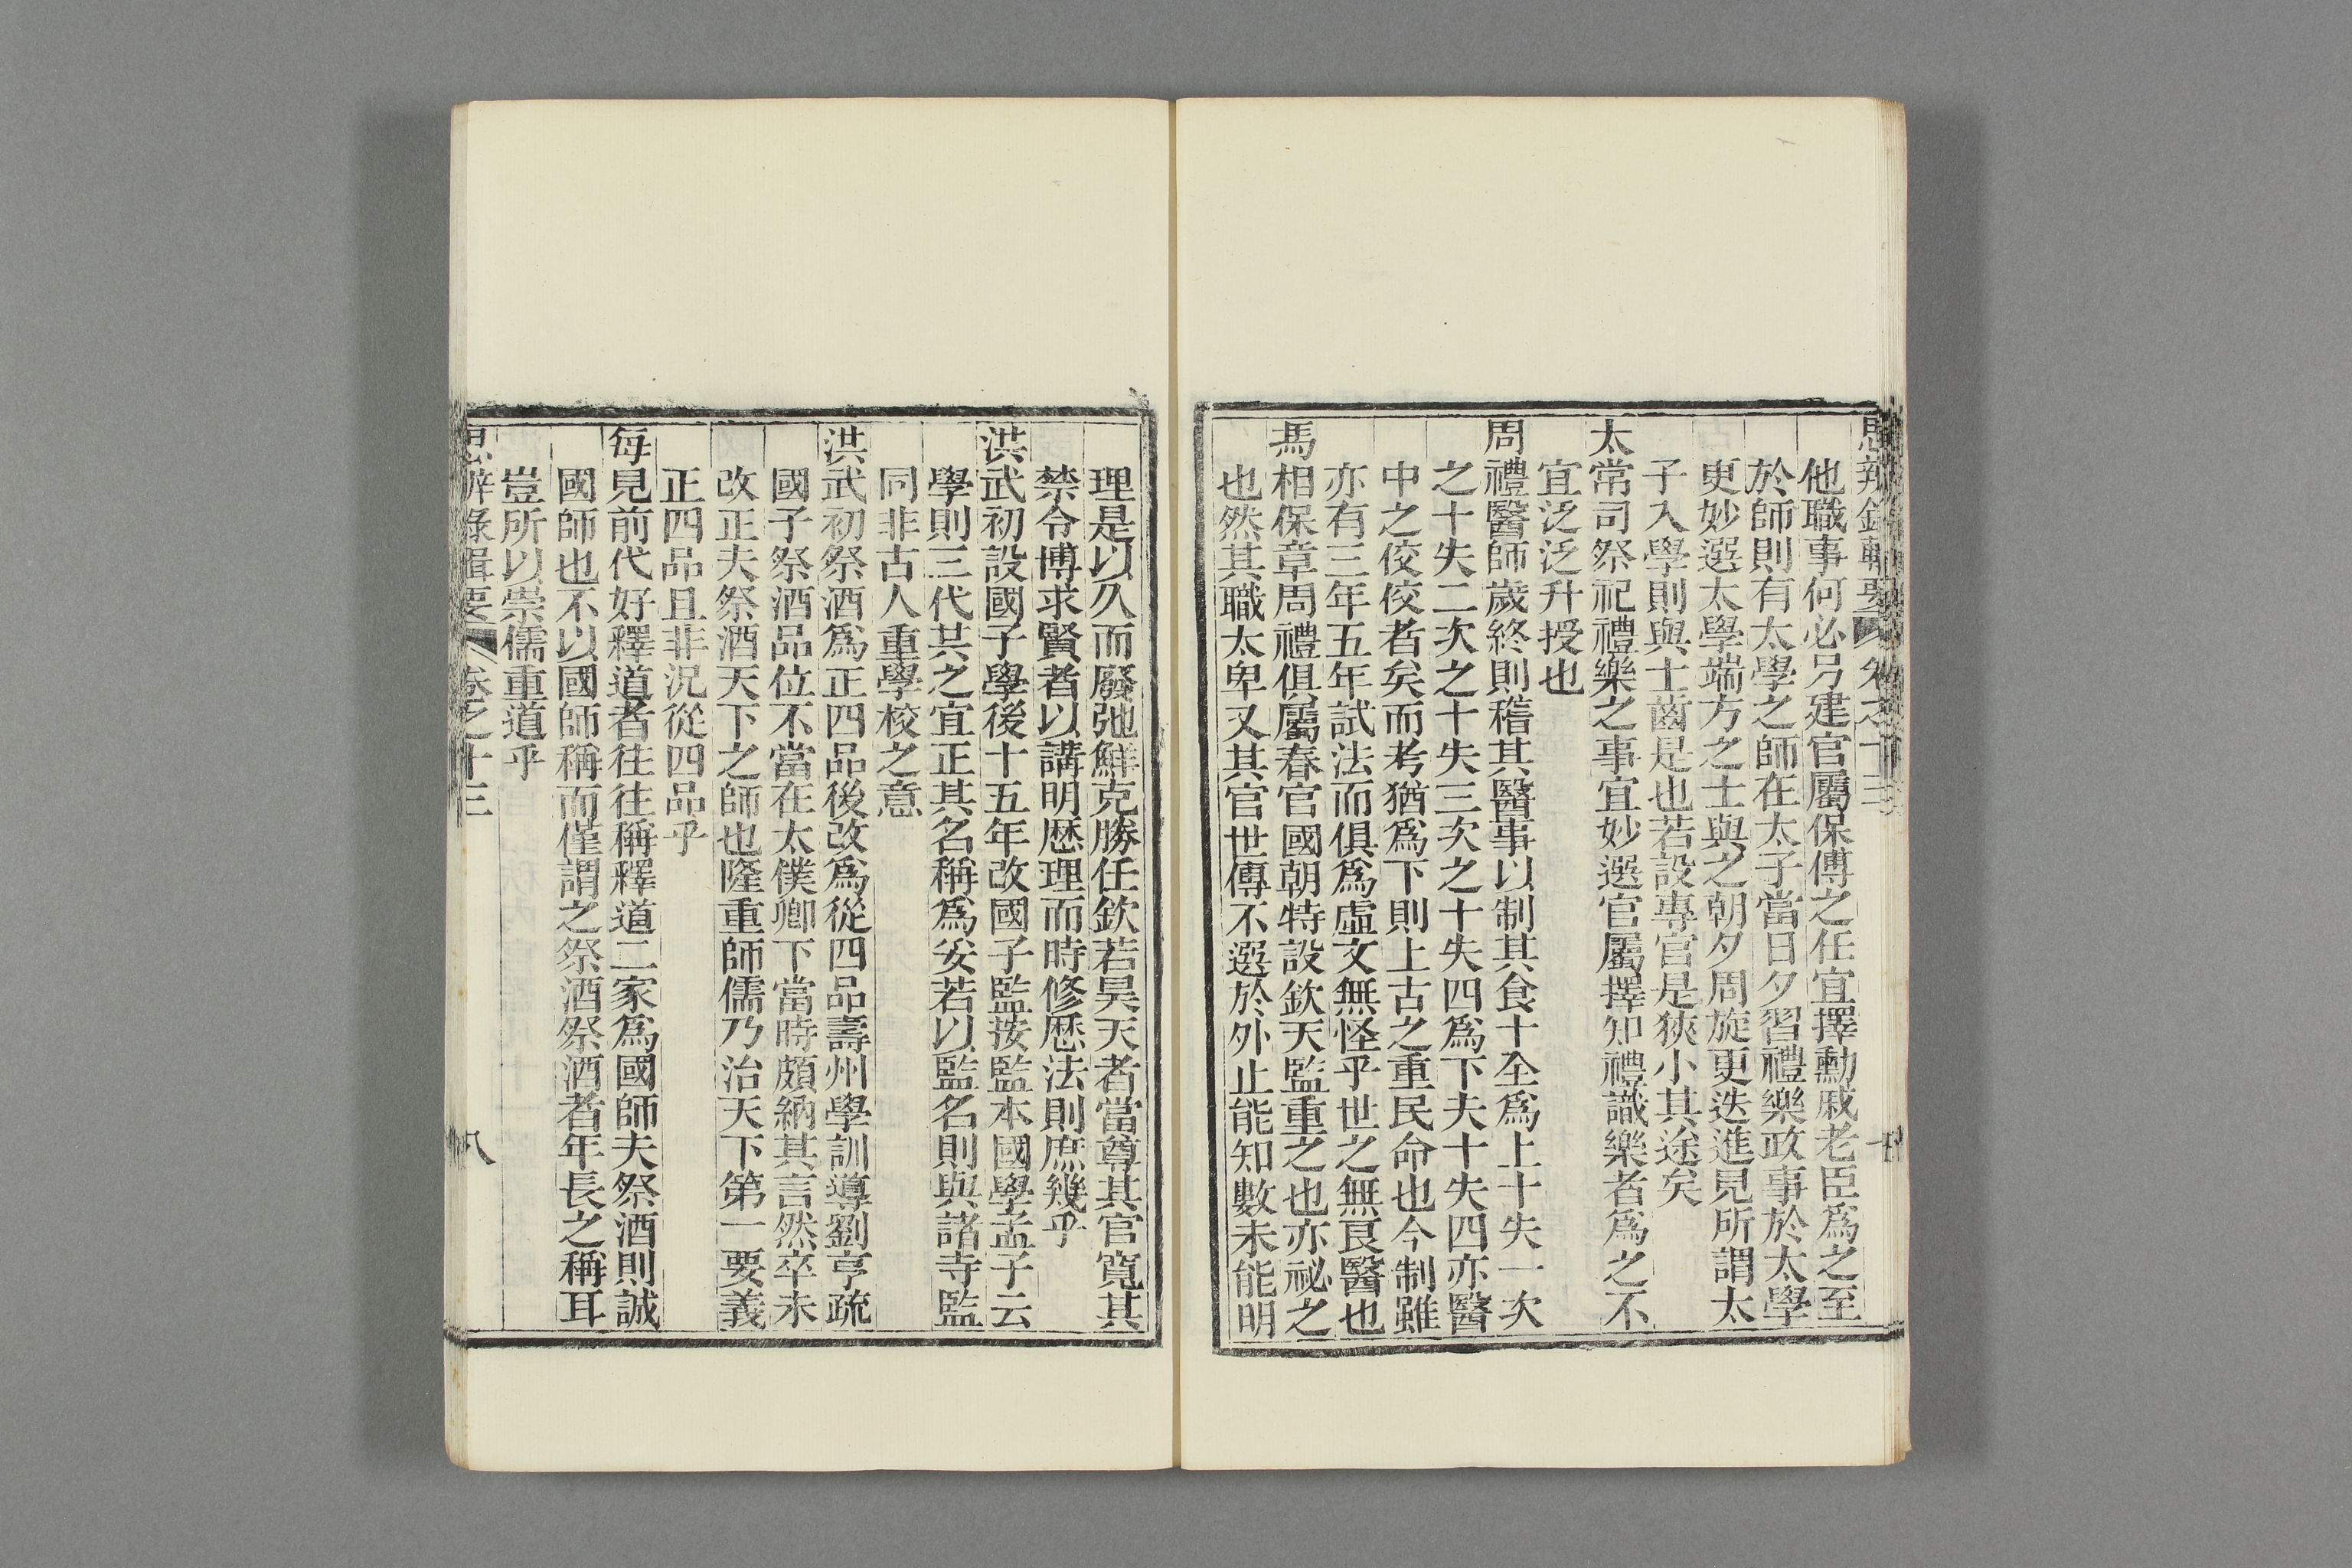 思辨錄輯要 卷之十三
他職事何必另建官屬保傅之任宜擇勳戚老臣爲之至
於師則有太學之師在太子當日夕習禮樂政事於太學
更妙選太學端方之士與之朝夕周旋更迭進見所謂太
子入學則與士齒是也若設專官是狹小其途矣
太常司祭祀禮樂之事宜妙選官屬擇知禮識樂者爲之不
宜泛泛升授也
周禮醫師歲終則稽其醫事以制其食十全爲上十失一次
之十失二次之十失三次之十失四爲下夫十失四亦醫
中之佼佼者矣而考猶爲下則上古之重民命也今制雖
亦有三年五年試法而俱爲虛文無怪乎世之無良醫也
馮相保章周禮俱屬春官國朝特設欽天監重之也亦祕之
也然其職太卑又其官世傳不選於外止能知數未能明
理是以久而廢弛鮮克勝任欽若昊天者當尊其官寬其
禁令博求賢者以講明歷理而時修歷法則庶幾乎
洪武初設國子學後十五年改國子監按監本國學孟子云
學則三代共之宜正其名稱爲妥若以監名則與諸寺監
同非古人重學校之意
洪武初祭酒爲正四品後改爲從四品壽州學訓導劉亨疏
國子祭酒品位不當在太僕卿下當時頗納其言然卒未
改正夫祭酒天下之師也隆重師儒乃治天下第一要義
正四品且非況從四品乎
每見前代好釋道者往往稱釋道二家爲國師夫祭酒則誠
國師也不以國師稱而僅謂之祭酒祭酒者年長之稱耳
豈所以崇儒重道乎
思辨錄輯要 卷之十三 八